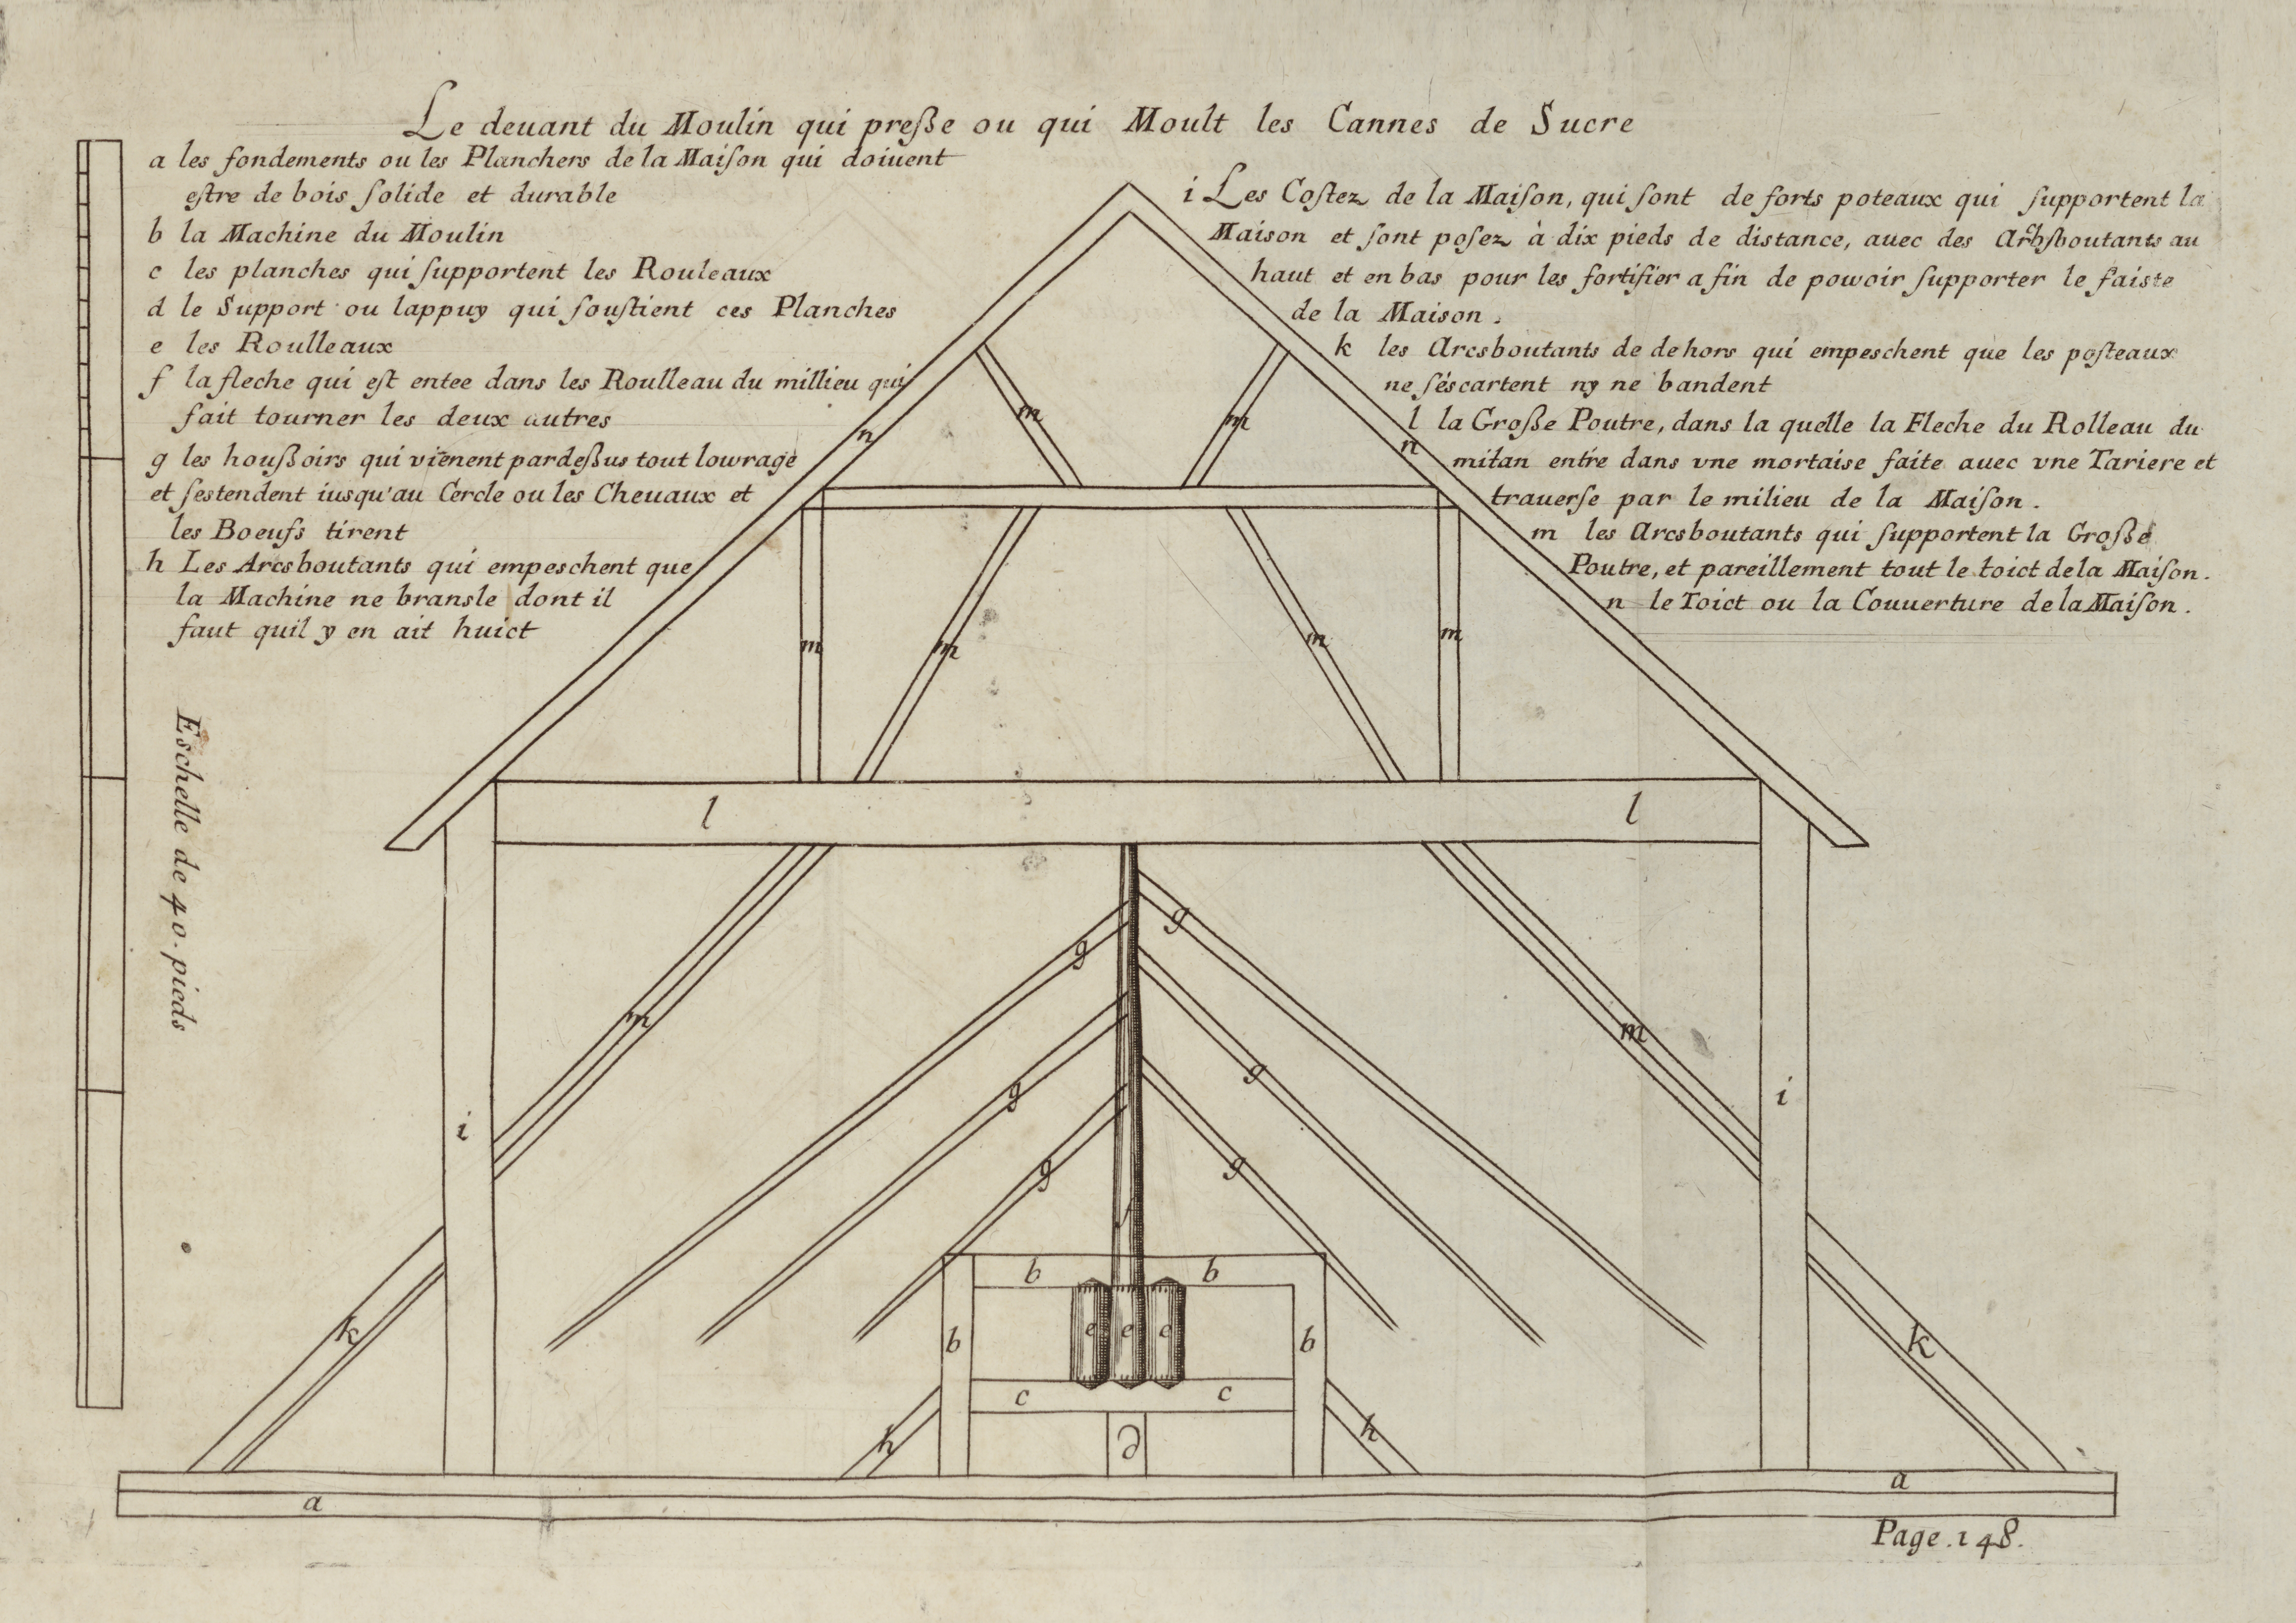 Le deuant du Moulin qui preße ou qui Moult les Cannes de Sucre
a les fondements ou les Planchers de la Maiſon qui doiuent
eſtre de bois ſolide et durable
b la Machine du Moulin
c les planches qui ſupportent les Rouleaux
d le Support ou lappuy qui ſouſtient ces Planches
e les Roulleaux
f la fleche qui eſt entee dans les Roulleau du millieu qui
fait tourner les deux autres
g les houßoirs qui vienent pardeßus tout lowrage
et ſestendent iusqu'au Cercle ou les Cheuaux et
les Boeufs tirent
h Les Arcsboutants qui empeschent que
la Machine ne bransle dont il
faut quil y en ait huict
i Les Coſtez de la Maiſon, qui ſont de forts poteaux qui ſupportent la
Maison et ſont poſez à dix pieds de distance, auec des Arcbſboutants au
haut et en bas pour les fortifier a fin de powoir ſupporter le faiste
de la Maison.
k les Arcsboutants de dehors qui empeschent que les poſteaux
ne ſéscartent ny ne bandent
l la Große Poutre, dans la quelle la Fleche du Rolleau du
mitan entre dans vne mortaise faite auec vne Tariere et
trauerſe par le milieu de la Maison.
m les Arcsboutants qui ſupportent la Große
Poutre, et pareillement tout le toict de la Maiſon.
n le Toict ou la Couuerture de la Maiſon.
Eschelle de 40. pieds
m
m
n
n
m
m
m
m
l
l
g
g
m
m
g
g
i
i
g
g
f
b
b
k
e
e
e
b
b
k
c
c
h
d
h
a
a
Page. 148.